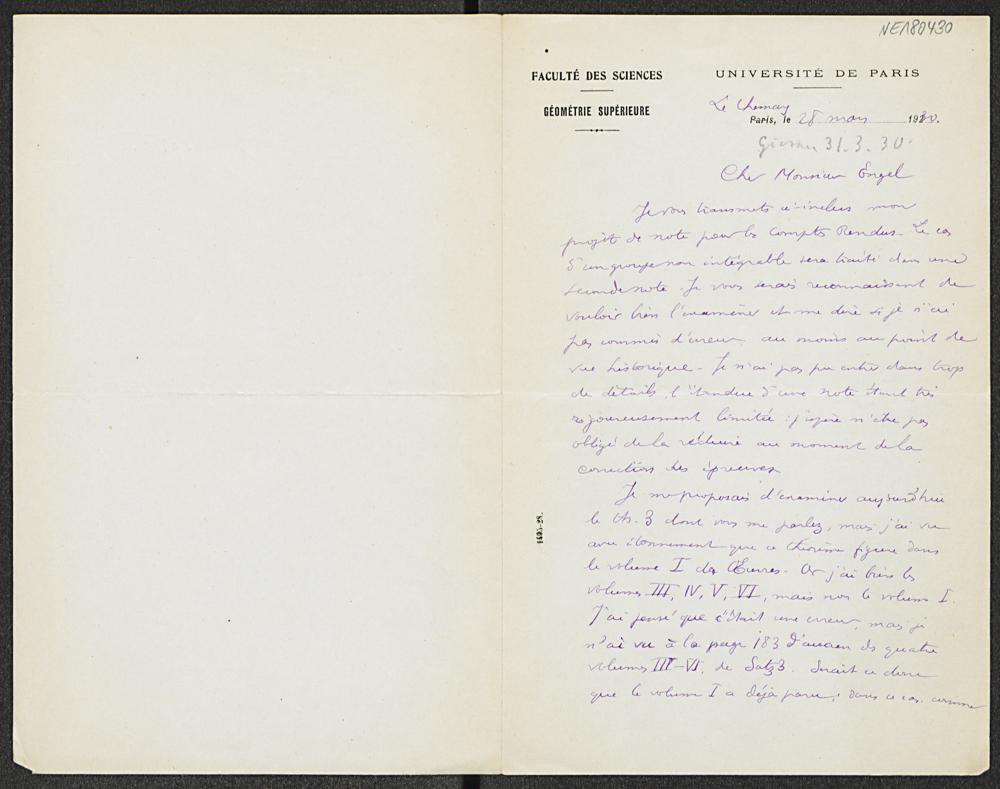 NE180430
FACULTÉ DES SCIENCES
UNIVERSITÉ DE PARIS
GÉOMÉTRIE SUPÉRIEURE
Le Chesnay
Paris, le 28 mars 1930.
31.3.30.
Cher Monsieur Engel
Je vous transmets ci-inclus mon
projet de note pour les Comptes Rendus. Le cas
d'un groupe non intégrable sera traité dans une
seconde note. Je vous serais reconnaissant de
vouloir bien l'examiner et me dire si je n'ai
pas commis d'erreur au moins au point de
vue historique. Je n'ai pas pu entrer dans trop
de détails, l'étendue d'une note étant très
rigoureusement limitée : j'espère n'être pas
obligé de la réduire au moment de la
correction des épreuves.
Je me proposais d'examiner aujourd'hui
le th. 3 dont vous me parlez, mais j'ai vu
avec étonnement que ce théorème figure dans
le volume I des Œuvres. Or j'ai bien les
volumes III, IV, V, VI, mais non le volume I.
J'ai pensé que c'était une erreur, mais je
n'ai vu à la page 183 d'aucun des quatre
volumes III-VI, de Satz 3. Serait-ce donc
que le volume I a déjà paru ; dans ce cas, comme
1495-28.